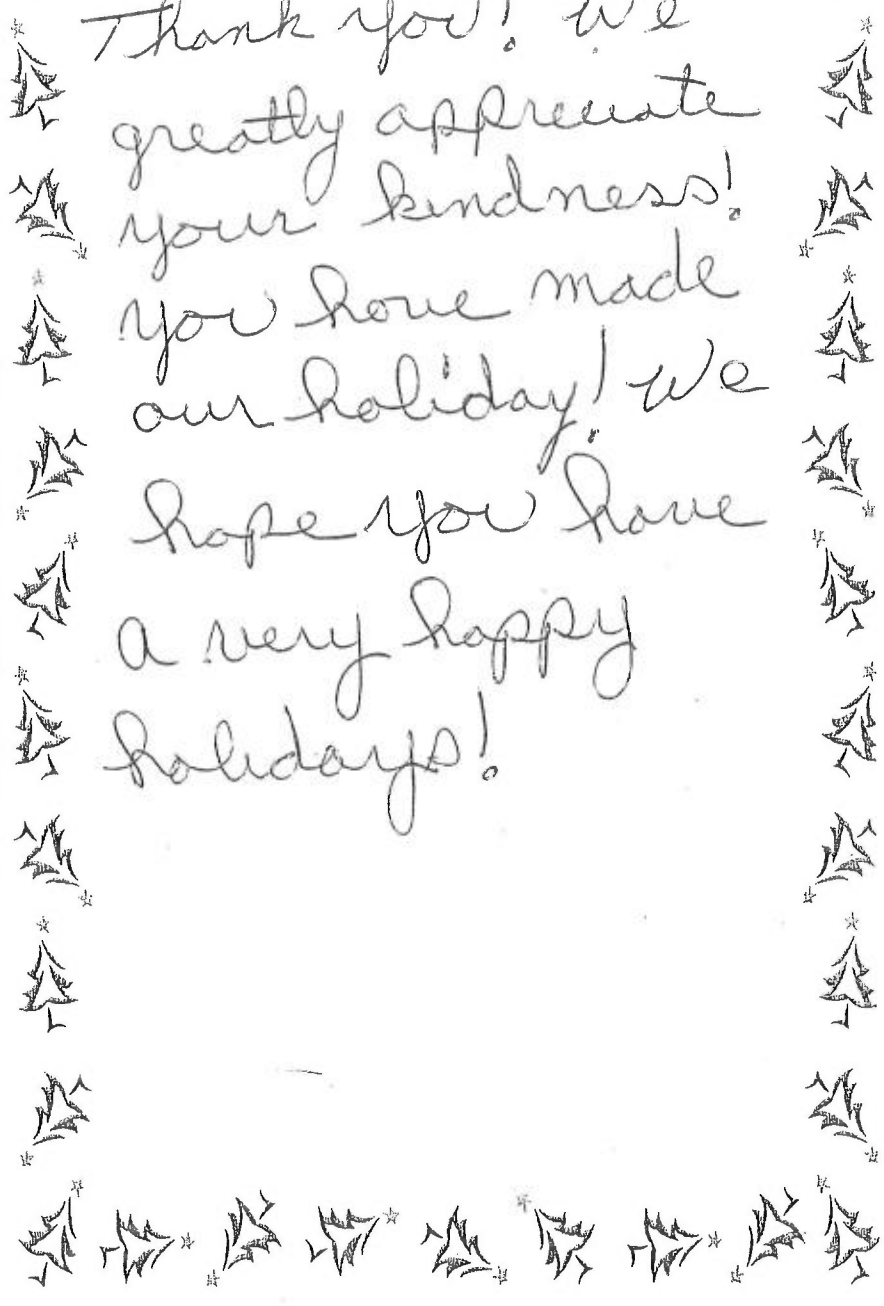 Thank you! We
greatly appreciate
your kindness!
you have made
our holiday! We
hope you have
a very happy
holidays!